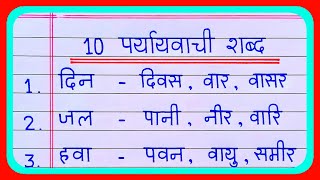 10 पर्यायवाची शब्द
1. दिन - दिवस, वार, वासर
2. जल - पानी, नीर, वारि
3. हवा - पवन, वायु, समीर